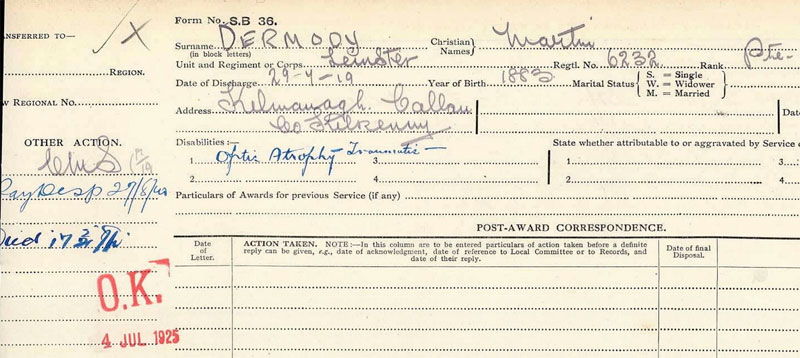 Form No. S.B 36.
ANSFERRED TO—
Surname DERMODY
(in block letters)
Christian Names} Martin
Unit and Regiment or Corps Leinster Regtl. No. 6232 Rank Pte.
REGION.
Date of Discharge 29-4-19 Year of Birth 1883 Marital Status { S. = Single
W. = Widower
M. = Married
W REGIONAL NO.
Address Kilmanagh. Callan
Co Kilkenny
Dat
OTHER ACTION.
Disabilities :—
State whether attributable to or aggravated by Service
1. Optic Atrophy Traumatic — 3. 1. 3.
2. 4. 2. 4.
Particulars of Awards for previous Service (if any)
POST-AWARD CORRESPONDENCE.
Date of Letter.
ACTION TAKEN. NOTE:—In this column are to be entered particulars of action taken before a definite
reply can be given, e.g., date of acknowledgment, date of reference to Local Committee or to Records, and
date of their reply.
Date of final
Disposal.
O.K.
4 JUL 1925